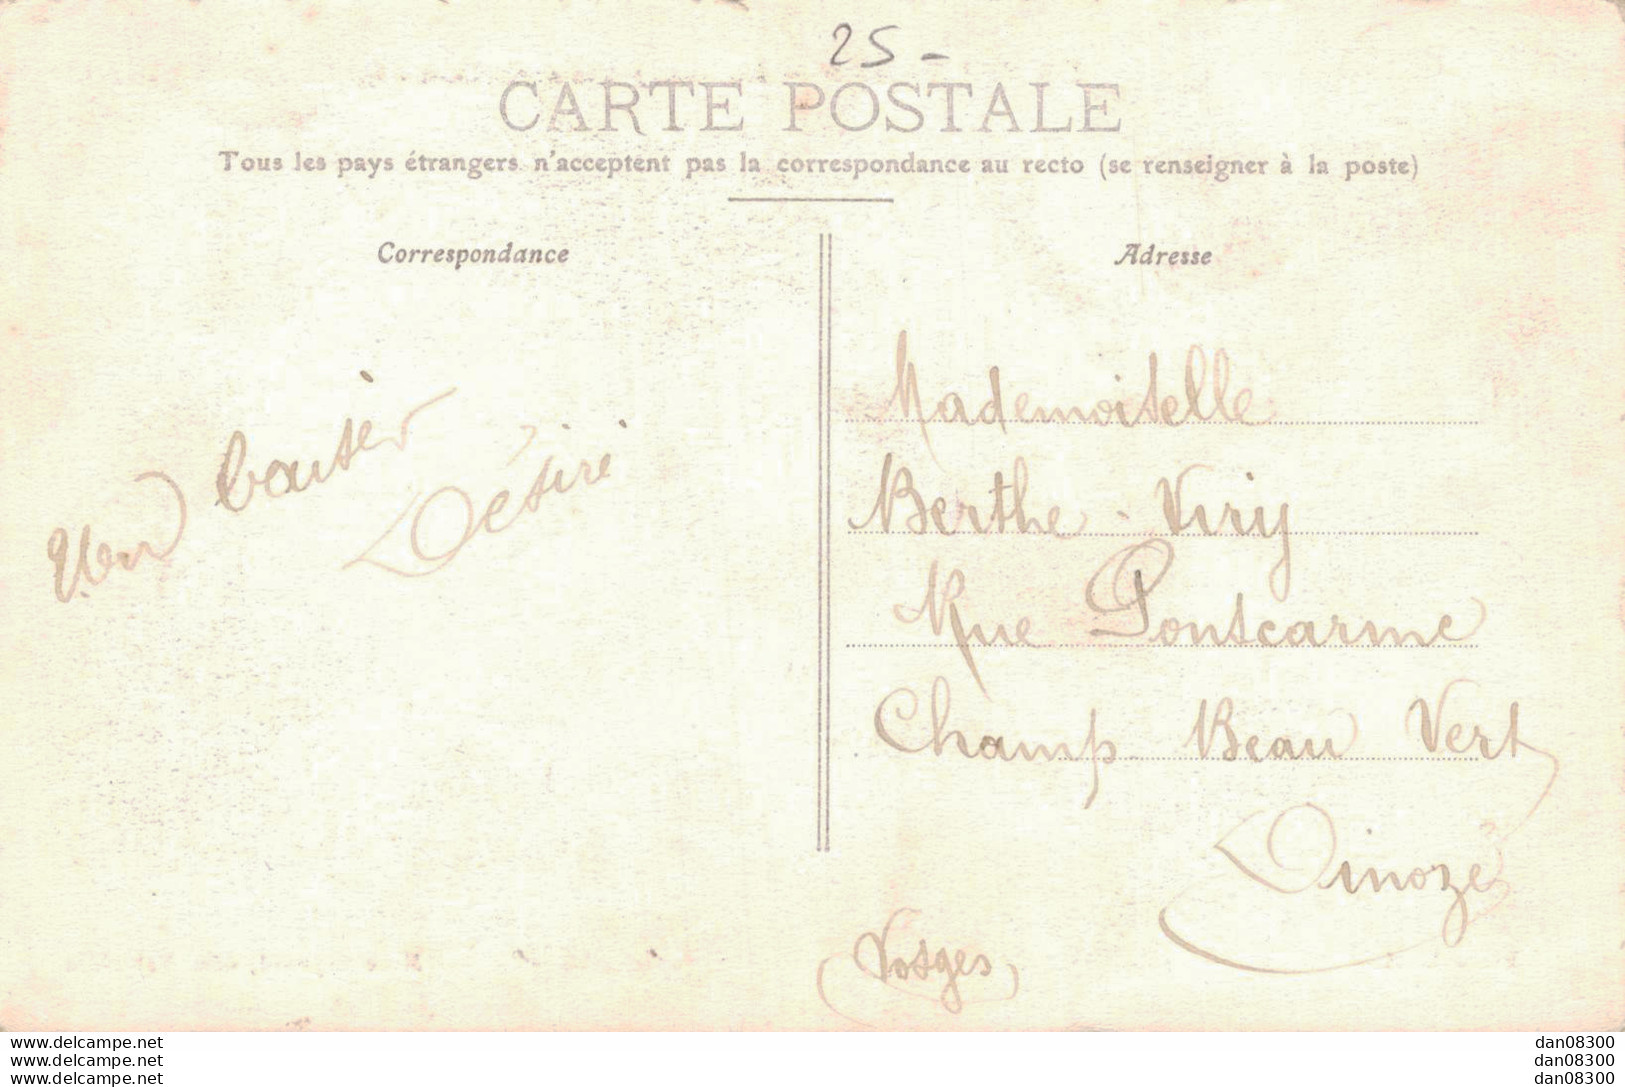 25-
CARTE POSTALE
Tous les pays étrangers n'acceptent pas la correspondance au recto (se renseigner à la poste)
Correspondance
Adresse
Un baiser
Désiré
Mademoiselle
Berthe Viry
Rue Pontcarme
Champ Beau Vert
Dinozé
(Vosges)
www.delcampe.net
www.delcampe.net
www.delcampe.net
dan08300
dan08300
dan08300